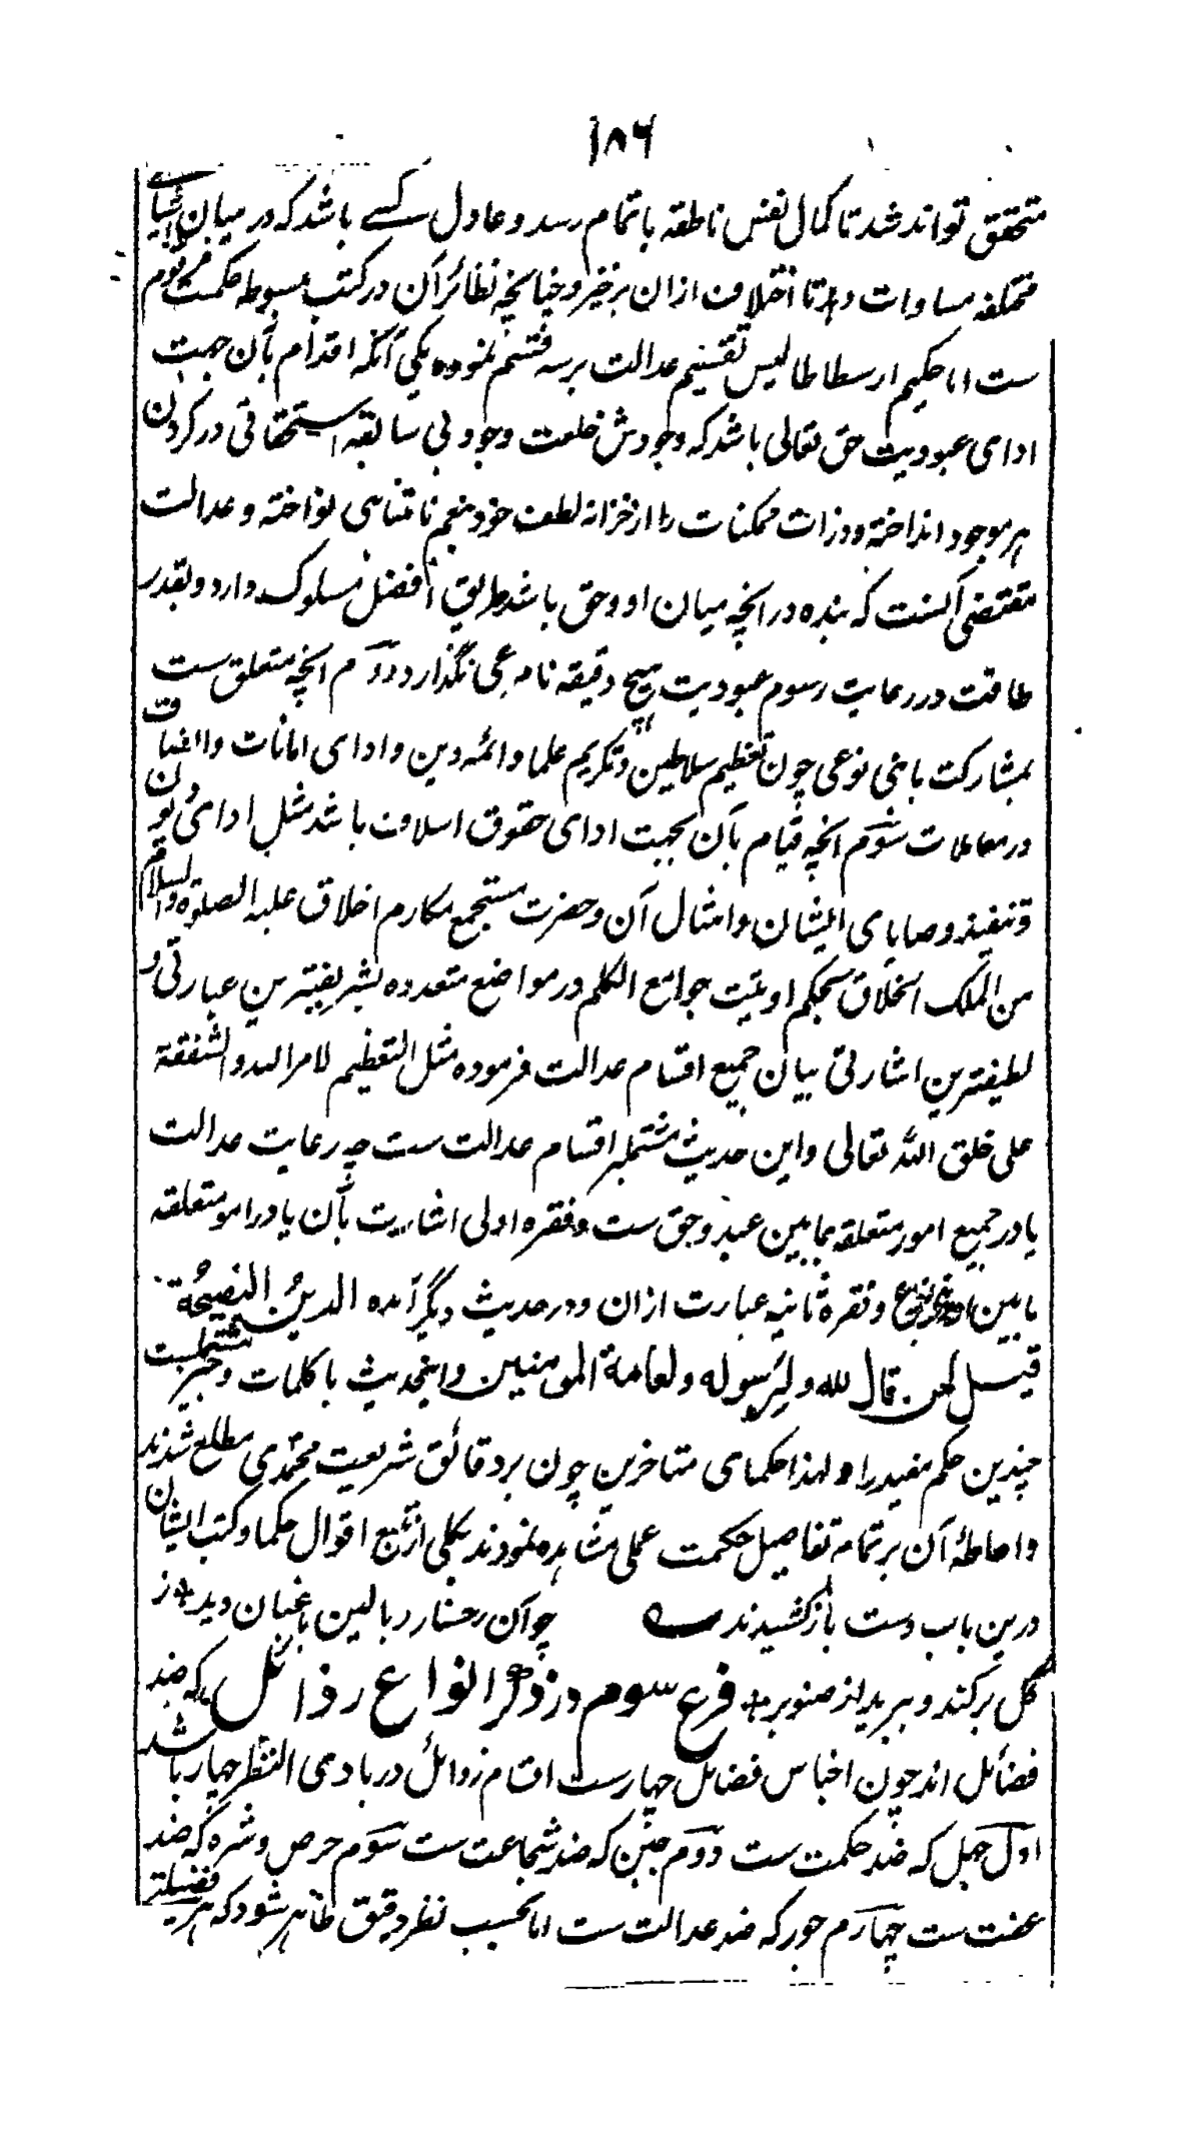 ۱۸۶
متحقق تواند شد تا کمال نفس ناطقه باتمام رسد و عادل کسے باشد که در میان اشیای
مختلفه مساوات دهد تا اختلاف ازان برخیزد چنانچه نظائر آن در کتب مبسوطه حکمت مرقوم
ست اما حکیم ارسطاطالیس تقسیم عدالت بر سه قسم نموده یکی آنکه اقدام بآن جهت
ادای عبودیت حق تعالی باشد که وجودش خلعت وجود بی سابقه استحقاقی در گردن
هر موجود انداخته و ذرات ممکنات را از خزانه لطف خود بنعم نامتناهی نواخته و عدالت
مقتضی آنست که بنده در آنچه میان او و حق باشد طریق افضل مسلوک دارد و بقدر
طاقت در رعایت رسوم عبودیت هیچ دقیقه نامرعی نگذارد دوم آنچه متعلق ست
بمشارکت بابنی نوعی چون تعظیم سلاطین و تکریم علما و ائمه دین و ادای امانات و انصاف
در معاملات سوم آنچه قیام بآن بجهت ادای حقوق اسلاف باشد مثل ادای دیون
و تنفیذ وصایای ایشان و امثال آن و حضرت مستجمع مکارم اخلاق علیه الصلوة والسلام
من الملک الخلاق بحکم اوتیت جوامع الکلم در مواضع متعدده بشریفترین عبارتی و
لطیفترین اشارتی بیان جمیع اقسام عدالت فرموده مثل التعظیم لامر الله والشفقة
علی خلق الله تعالی و این حدیث مشتمل بر اقسام عدالت ست چه رعایت عدالت
یا در جمیع امور متعلقه بمابین عبد و حق ست و فقره اولی اشاریت بآن یا در امور متعلقه
مابین او و بنی نوع و فقرهٔ ثانیه عبارت ازان و در حدیث دیگر آمده الدین النصیحة
قیل لمن قال لله و لرسوله و لعامة المومنین و اینحدیث با کلمات وجیز مشتملست
چندین حکم مفید را و لهذا حکمای متاخرین چون بر دقائق شریعت محمدی مطلع شدند
و احاطهٔ آن بر تمامه تفاصیل حکمت عملی مشاهده نمودند بکلی از تتبع اقوال حکما و کتب ایشان
درین باب دست باز کشیدند ؎ چو آن رخسار و بالین باغبان دید * ز
گل برکند و ببرید از صنوبر * فرع سوم در ذکر انواع رذائل که ضد
فضائل اند چون اجناس فضائل چهار ست اقسام رذائل در بادی النظر چهار باشد
اول جهل که ضد حکمت ست دوم جبن که ضد شجاعت ست سوم حرص و شره که ضد
عفت ست چهارم جور که ضد عدالت ست اما بحسب نظر دقیق ظاهر شود که هر فضیلتی